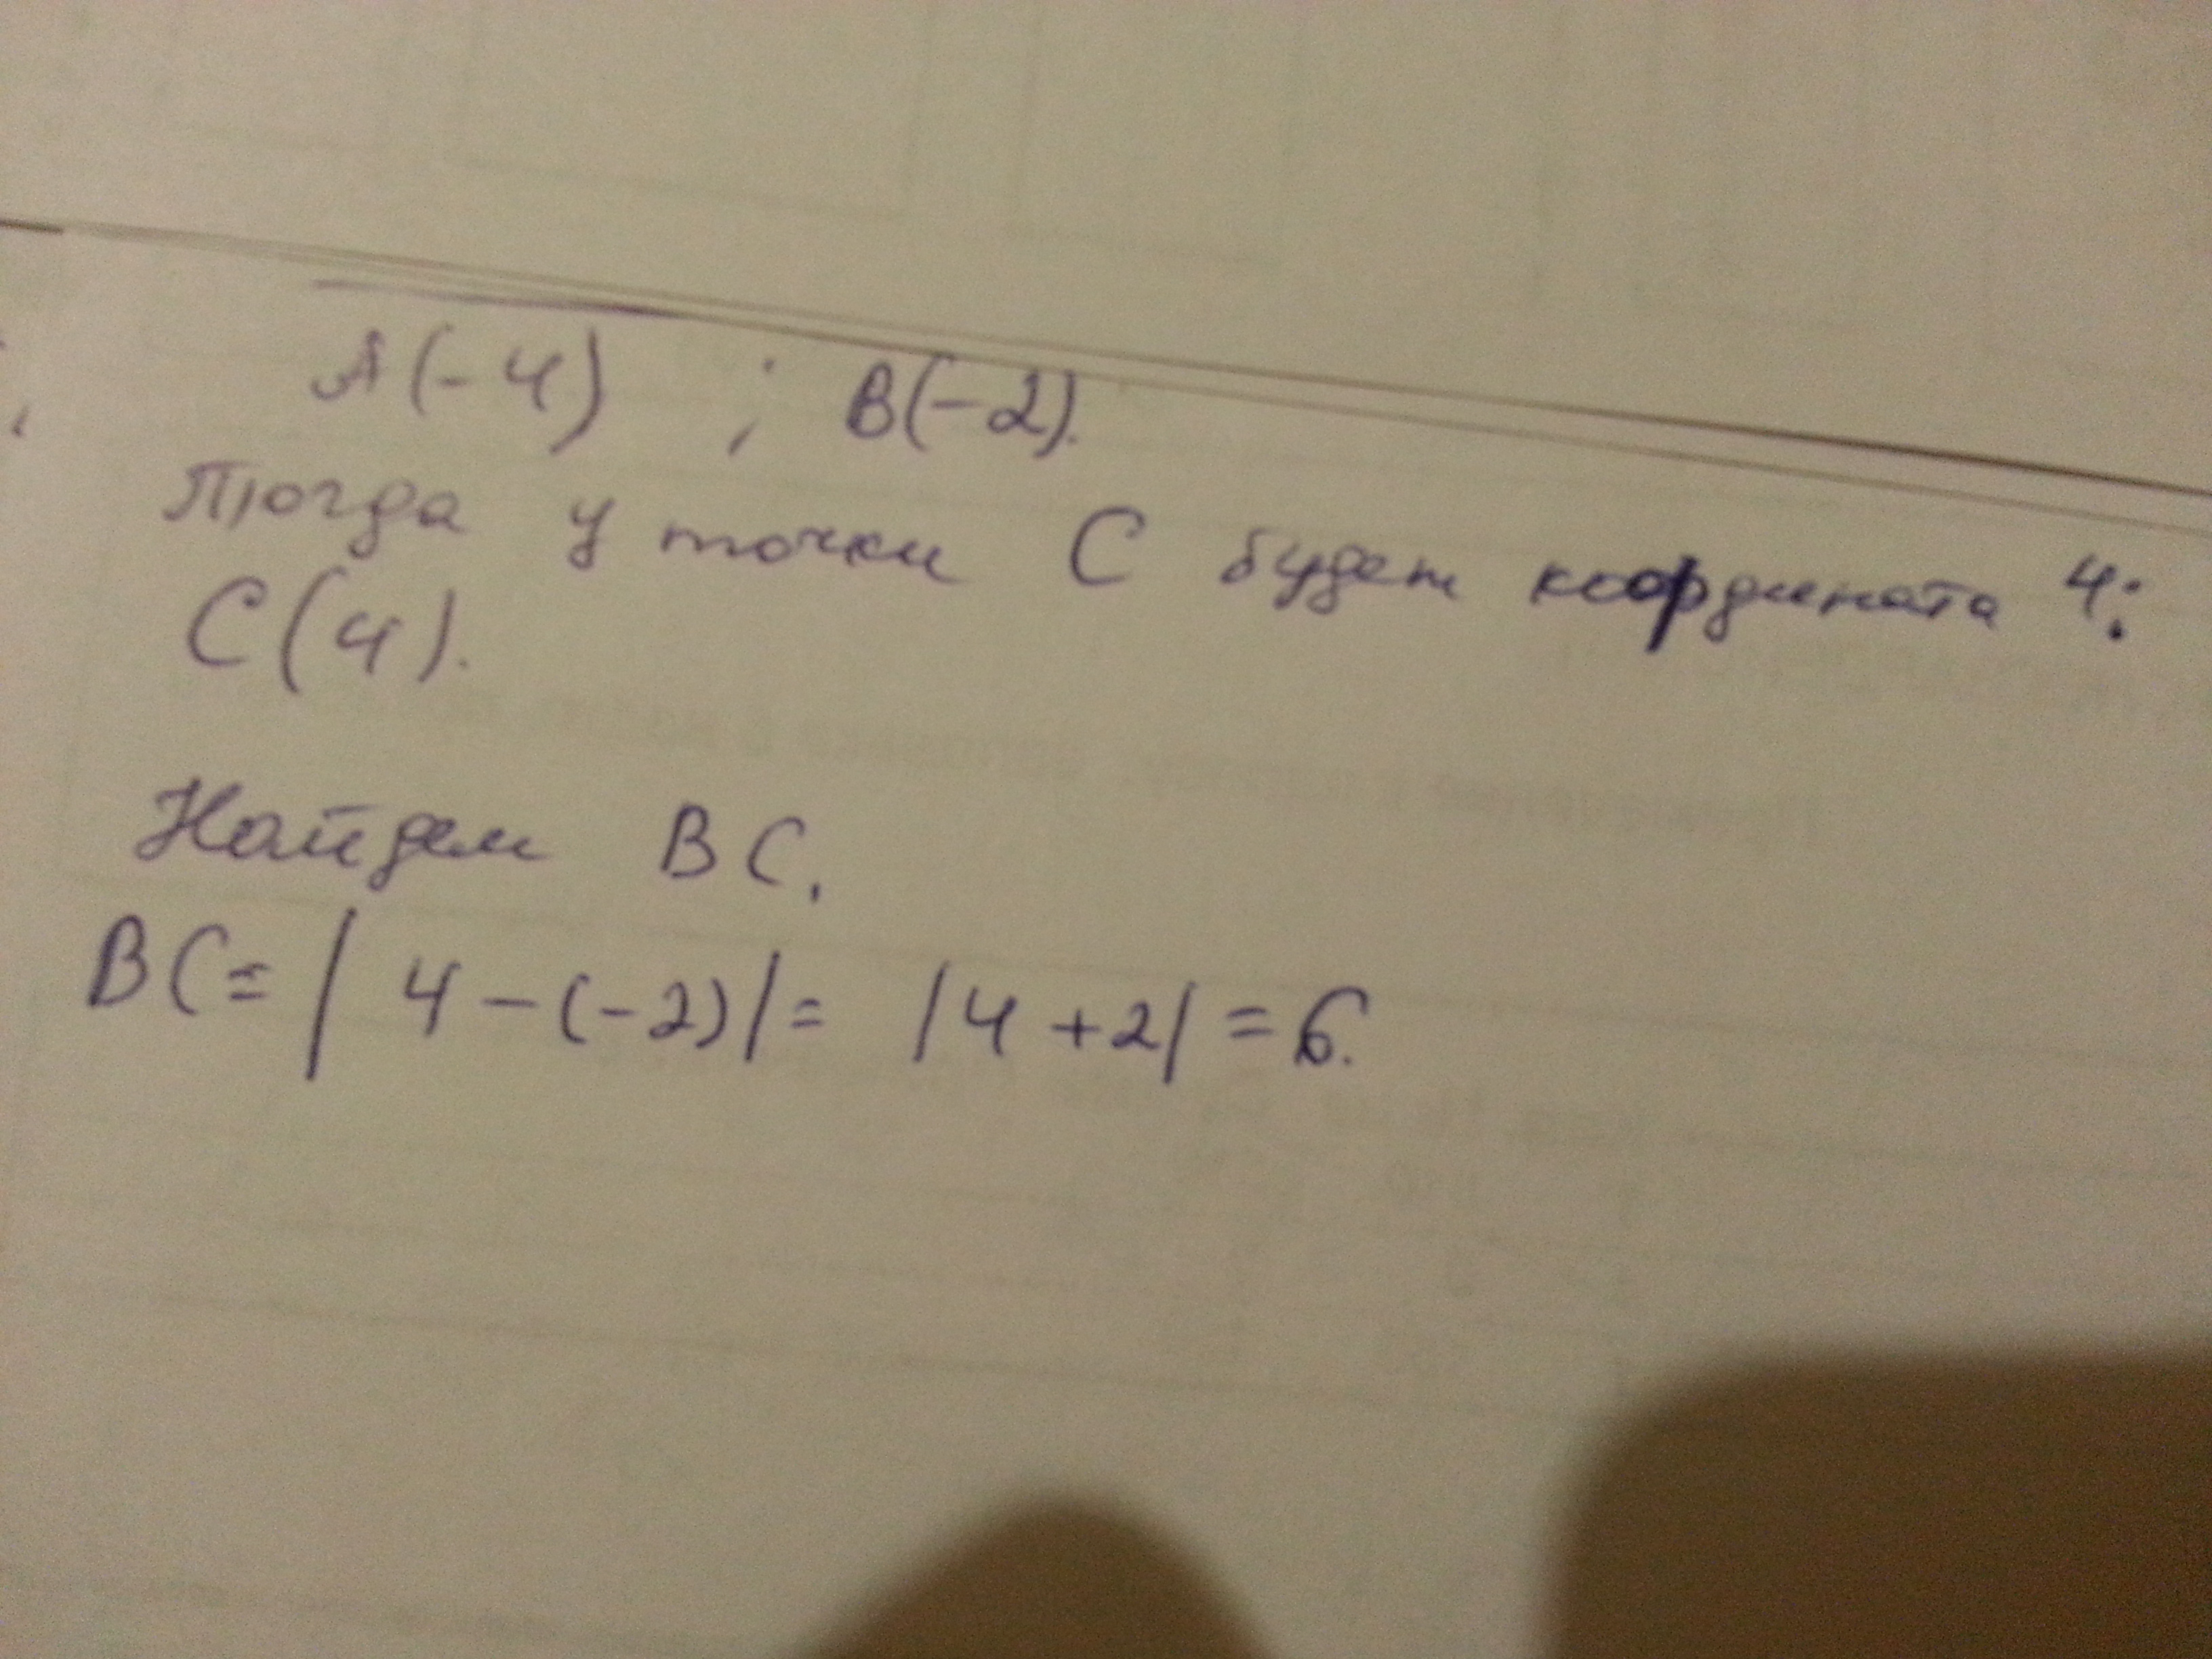 A(-4) ; B(-2).
Тогда у точки C будет координата 4:
C(4).
Найдем BC.
BC = | 4 - (-2)| = |4 + 2| = 6.